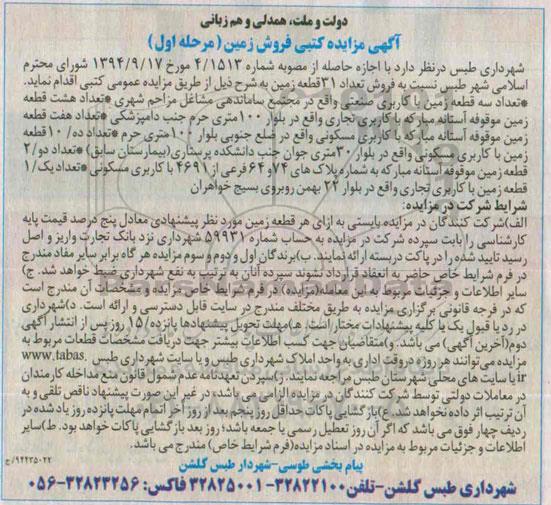 دولت و ملت، همدلی و هم زبانی
آگهی مزایده کتبی فروش زمین (مرحله اول)
شهرداری طبس درنظر دارد با اجازه حاصله از مصوبه شماره ۴/۱۵۱۳ مورخ ۱۳۹۴/۹/۱۷ شورای محترم
اسلامی شهر طبس نسبت به فروش تعداد ۳۱قطعه زمین به شرح ذیل از طریق مزایده عمومی کتبی اقدام نماید.
*تعداد سه قطعه زمین با کاربری صنعتی واقع در مجتمع ساماندهی مشاغل مزاحم شهری *تعداد هشت قطعه
زمین موقوفه آستانه مبارکه با کاربری تجاری واقع در بلوار ۱۰۰متری حرم جنب دامپزشکی *تعداد هفت قطعه
زمین موقوفه آستانه مبارکه با کاربری مسکونی واقع در ضلع جنوبی بلوار ۱۰۰متری حرم *تعداد ده/ ۱۰قطعه
زمین با کاربری مسکونی واقع در بلوار ۳۰متری جوان جنب دانشکده پرستاری(بیمارستان سابق) *تعداد دو/۲
قطعه زمین موقوفه آستانه مبارکه به شماره پلاک های ۷۴و۶۴ فرعی از ۴۶۹۱ با کاربری مسکونی *تعداد یک/۱
قطعه زمین با کاربری تجاری واقع در بلوار ۲۲ بهمن روبروی بسیج خواهران
شرایط شرکت در مزایده:
الف)شرکت کنندگان در مزایده بایستی به ازای هر قطعه زمین مورد نظر پیشنهادی معادل پنج درصد قیمت پایه
کارشناسی را بابت سپرده شرکت در مزایده به حساب شماره ۵۹۹۳۱ شهرداری نزد بانک تجارت واریز و اصل
رسید تایید شده را در پاکت دربسته ارائه نمایند. ب)برندگان اول و دوم و سوم مزایده هر گاه برابر سایر مفاد مندرج
در فرم شرایط خاص حاضر به انعقاد قرارداد نشوند سپرده آنان به ترتیب به نفع شهرداری ضبط خواهد شد. ج)
سایر اطلاعات و جزئیات مربوط به این معامله(مزایده) در فرم شرایط خاص مزایده و مشخصات آن مندرج است
که در فرجه قانونی برگزاری مزایده به طریق مختلف مندرج در سایت قابل دسترسی و ارائه است. د)شهرداری
در رد یا قبول یک یا کلیه پیشنهادات مختار است. ه)مهلت تحویل پیشنهادها پانزده/۱۵ روز پس از انتشار آگهی
دوم(آخرین آگهی) می باشد. و)متقاضیان جهت کسب اطلاعات بیشتر جهت دریافت مشخصات قطعات مربوط به
مزایده می‌توانند هر روزه دروقت اداری به واحد املاک شهرداری طبس و یا سایت شهرداری طبس www.tabas.
ir یا سایت های محلی شهرستان طبس مراجعه نمایند. ز)سپردن تعهدنامه عدم شمول قانون منع مداخله کارمندان
در معاملات دولتی توسط شرکت کنندگان در مزایده الزامی می باشد، در غیر این صورت پیشنهاد ناقص تلقی و به
آن ترتیب اثر داده نخواهد شد. ع)بازگشایی پاکات حداقل روز پنجم بعد از روز آخر اتمام مهلت پانزده روز یاد شده در
ردیف چهار فوق می باشد که اگر آن روز تعطیل رسمی یا جمعه باشد؛ روز بعد بازگشایی پاکات خواهد بود. ط)سایر
اطلاعات و جزئیات مربوط به مزایده در اسناد مزایده(فرم شرایط خاص) مندرج می باشد.
پیام بخشی طوسی-شهردار طبس گلشن
۹۴۴۳۵۰۲۲/ج
شهرداری طبس گلشن-تلفن۳۲۸۲۲۱۰۰-۳۲۸۲۵۰۰۱ فاکس: ۳۲۸۲۳۲۵۶-۰۵۶